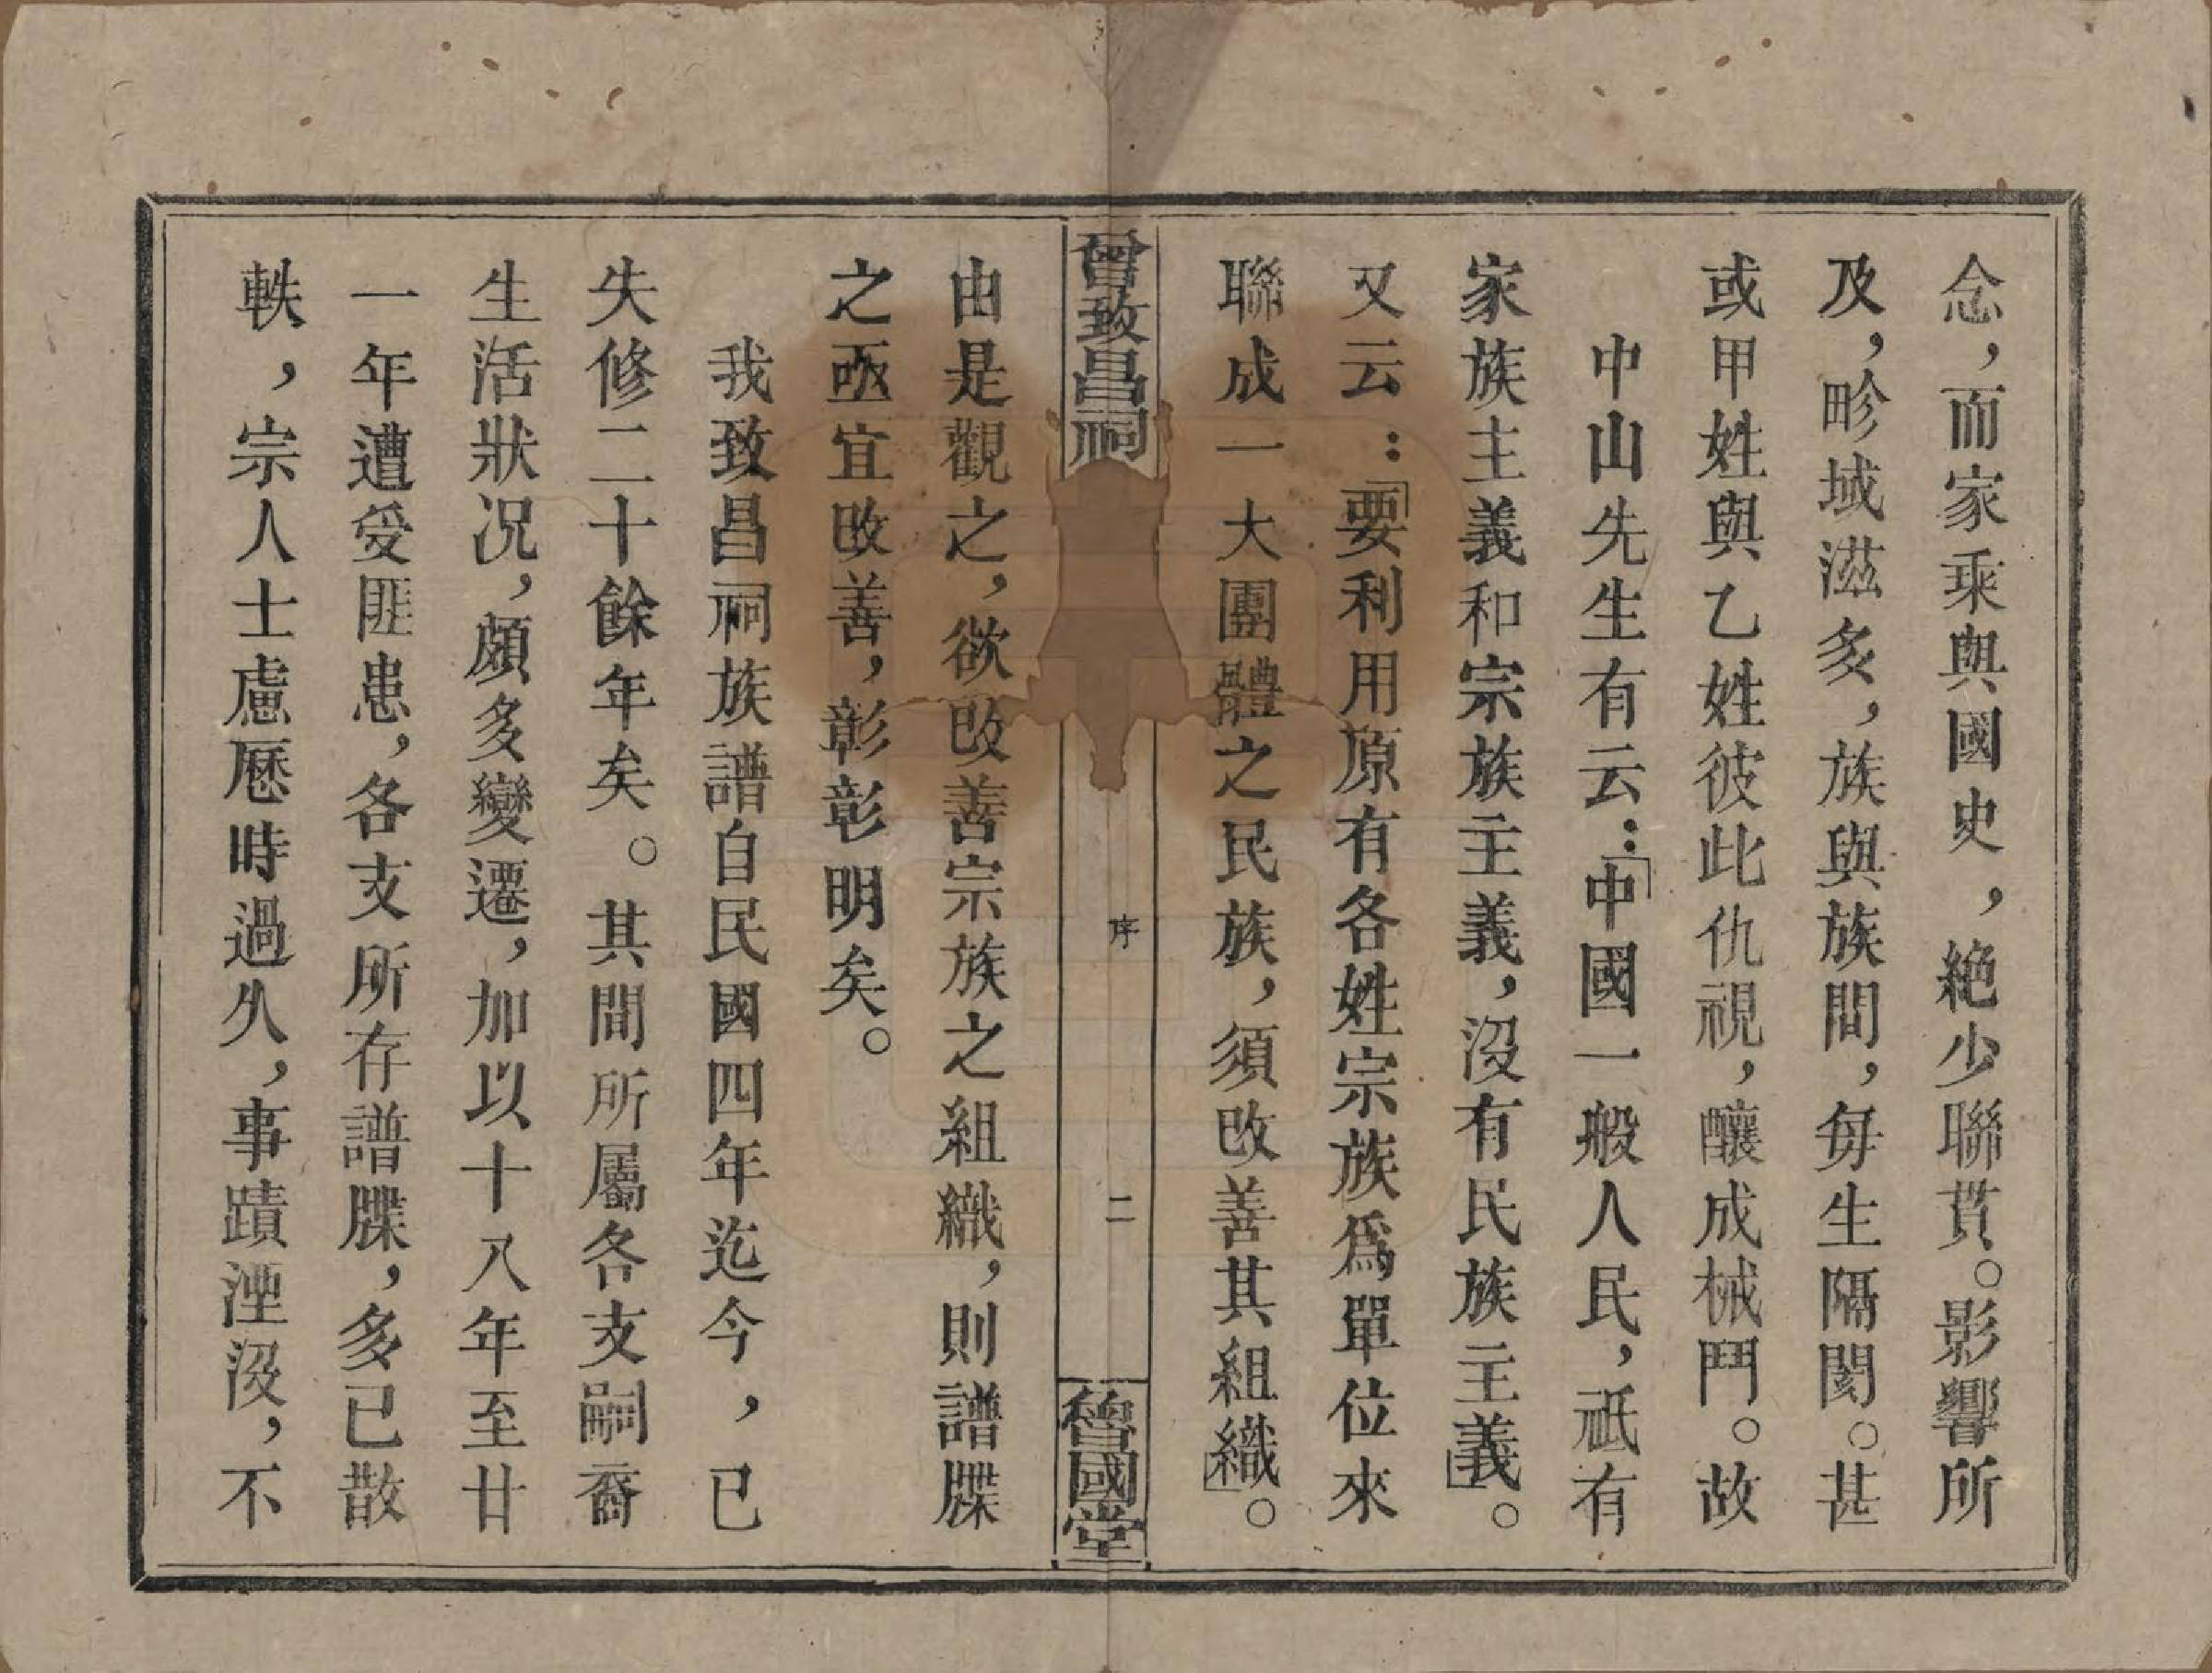 念，而家乘與國史，絶少聯貫。影響所
及，畛域滋多，族與族間，每生隔閡。甚
或甲姓與乙姓彼此仇視，釀成械鬥。故
中山先生有云：「中國一般人民，祗有
家族主義和宗族主義，沒有民族主義」。
又云：「要利用原有各姓宗族爲單位來
聯成一大團體之民族，須改善其組織」。
曾致昌祠
序
二
魯國堂
由是觀之，欲改善宗族之組織，則譜牒
之亟宜改善，彰彰明矣。
我致昌祠族譜自民國四年迄今，已
失修二十餘年矣。其間所屬各支嗣裔
生活狀况，頗多變遷，加以十八年至廿
一年遭受匪患，各支所存譜牒，多已散
軼，宗人士慮歷時過久，事蹟湮沒，不